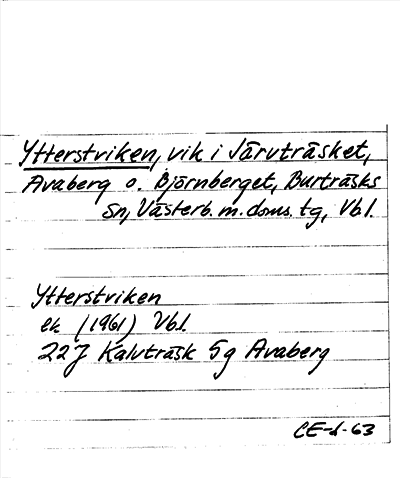 Ytterstviken, vik i Järvträsket,
Avaberg o. Björnberget, Burträsks
Sn, Västerb. m. doms. tg, Vbl.
Ytterstviken
ek (1961) Vbl.
22J Kalvträsk 5g Avaberg
CE-d-63